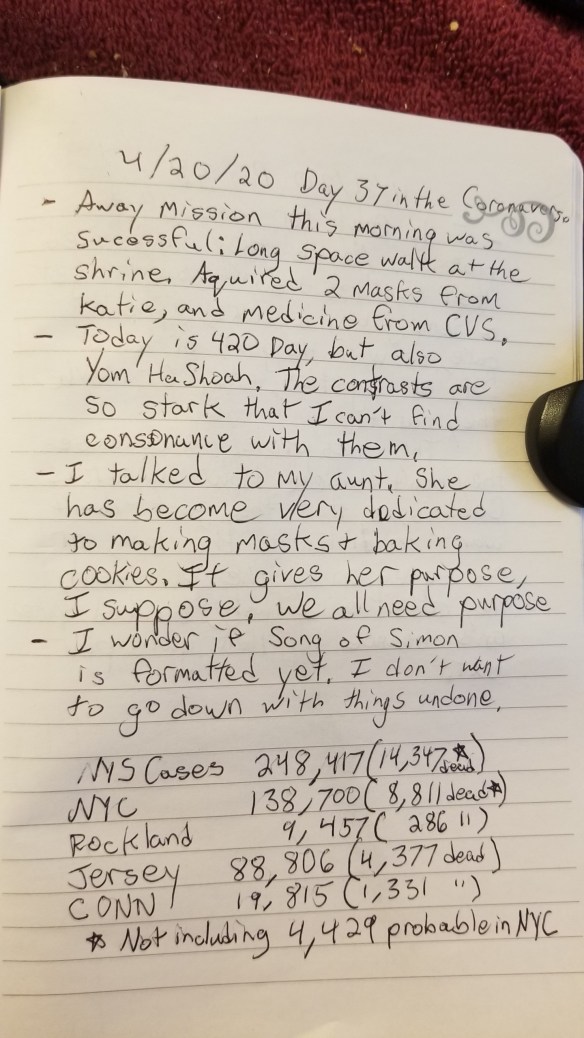 4/20/20 Day 37 in the Coronaverse
- Away Mission this morning was
Sucessful: Long Space walk at the
shrine. Aquired 2 Masks from
Katie, and medicine from CVS.
- Today is 420 Day, but also
Yom HaShoah. The contrasts are
so stark that I can't find
consonance with them.
- I talked to my aunt. She
has become very dedicated
to making masks + baking
cookies. It gives her purpose,
I suppose. We all need purpose
- I wonder if Song of Simon
is formatted yet. I don't want
to go down with things undone.
NYS Cases 248,417 (14,347☆ dead)
NYC 138,700 (8,811 dead☆)
Rockland 9,457 (286 ")
Jersey 88,806 (4,377 dead)
CONN 19,815 (1,331 ")
☆ Not including 4,429 probable in NYC